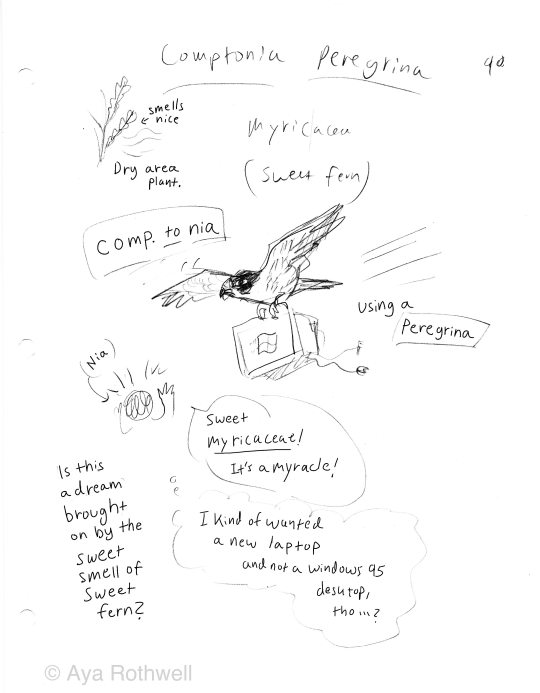 Comptonia Peregrina
90
smells
nice
Dry area
plant.
Myricacea
(Sweet fern)
comp. to nia
using a
Peregrina
(Nia)
Sweet
myricaceae!
It's a myracle!
Is this
a dream
brought
on by the
sweet
smell of
sweet
fern?
I kind of wanted
a new laptop
and not a windows 95
desktop,
tho...?
© Aya Rothwell